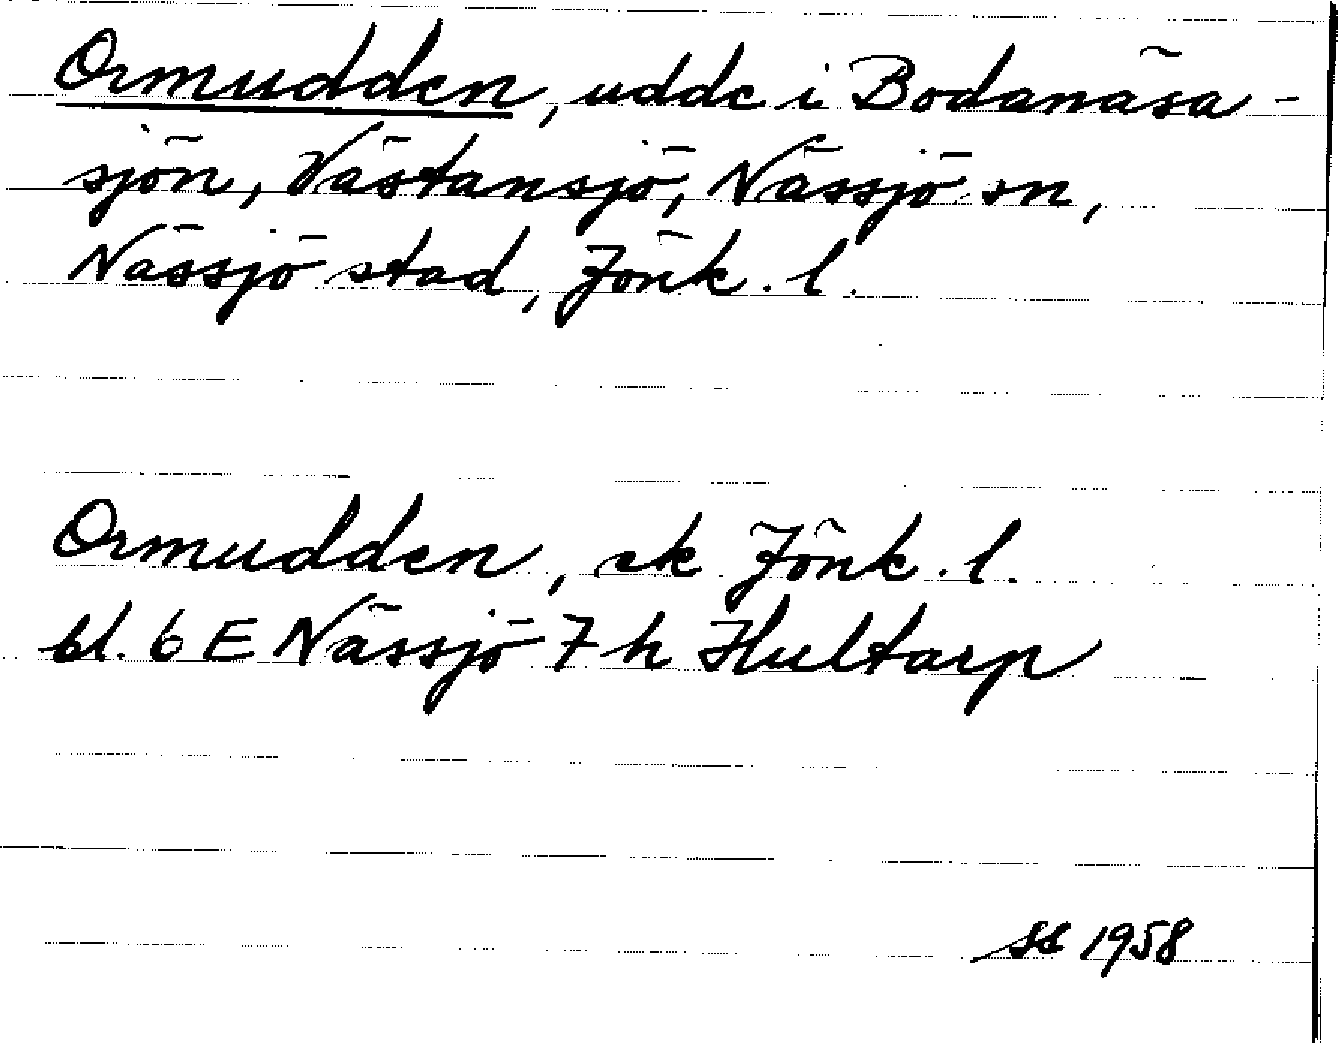 Ormudden, udde i Bodanäsa-
sjön, Västansjö, Nässjö sn,
Nässjö stad, Jönk. l.
Ormudden, ek Jönk. l.
bl. 6 E Nässjö 7 h Hultarp
SS 1958